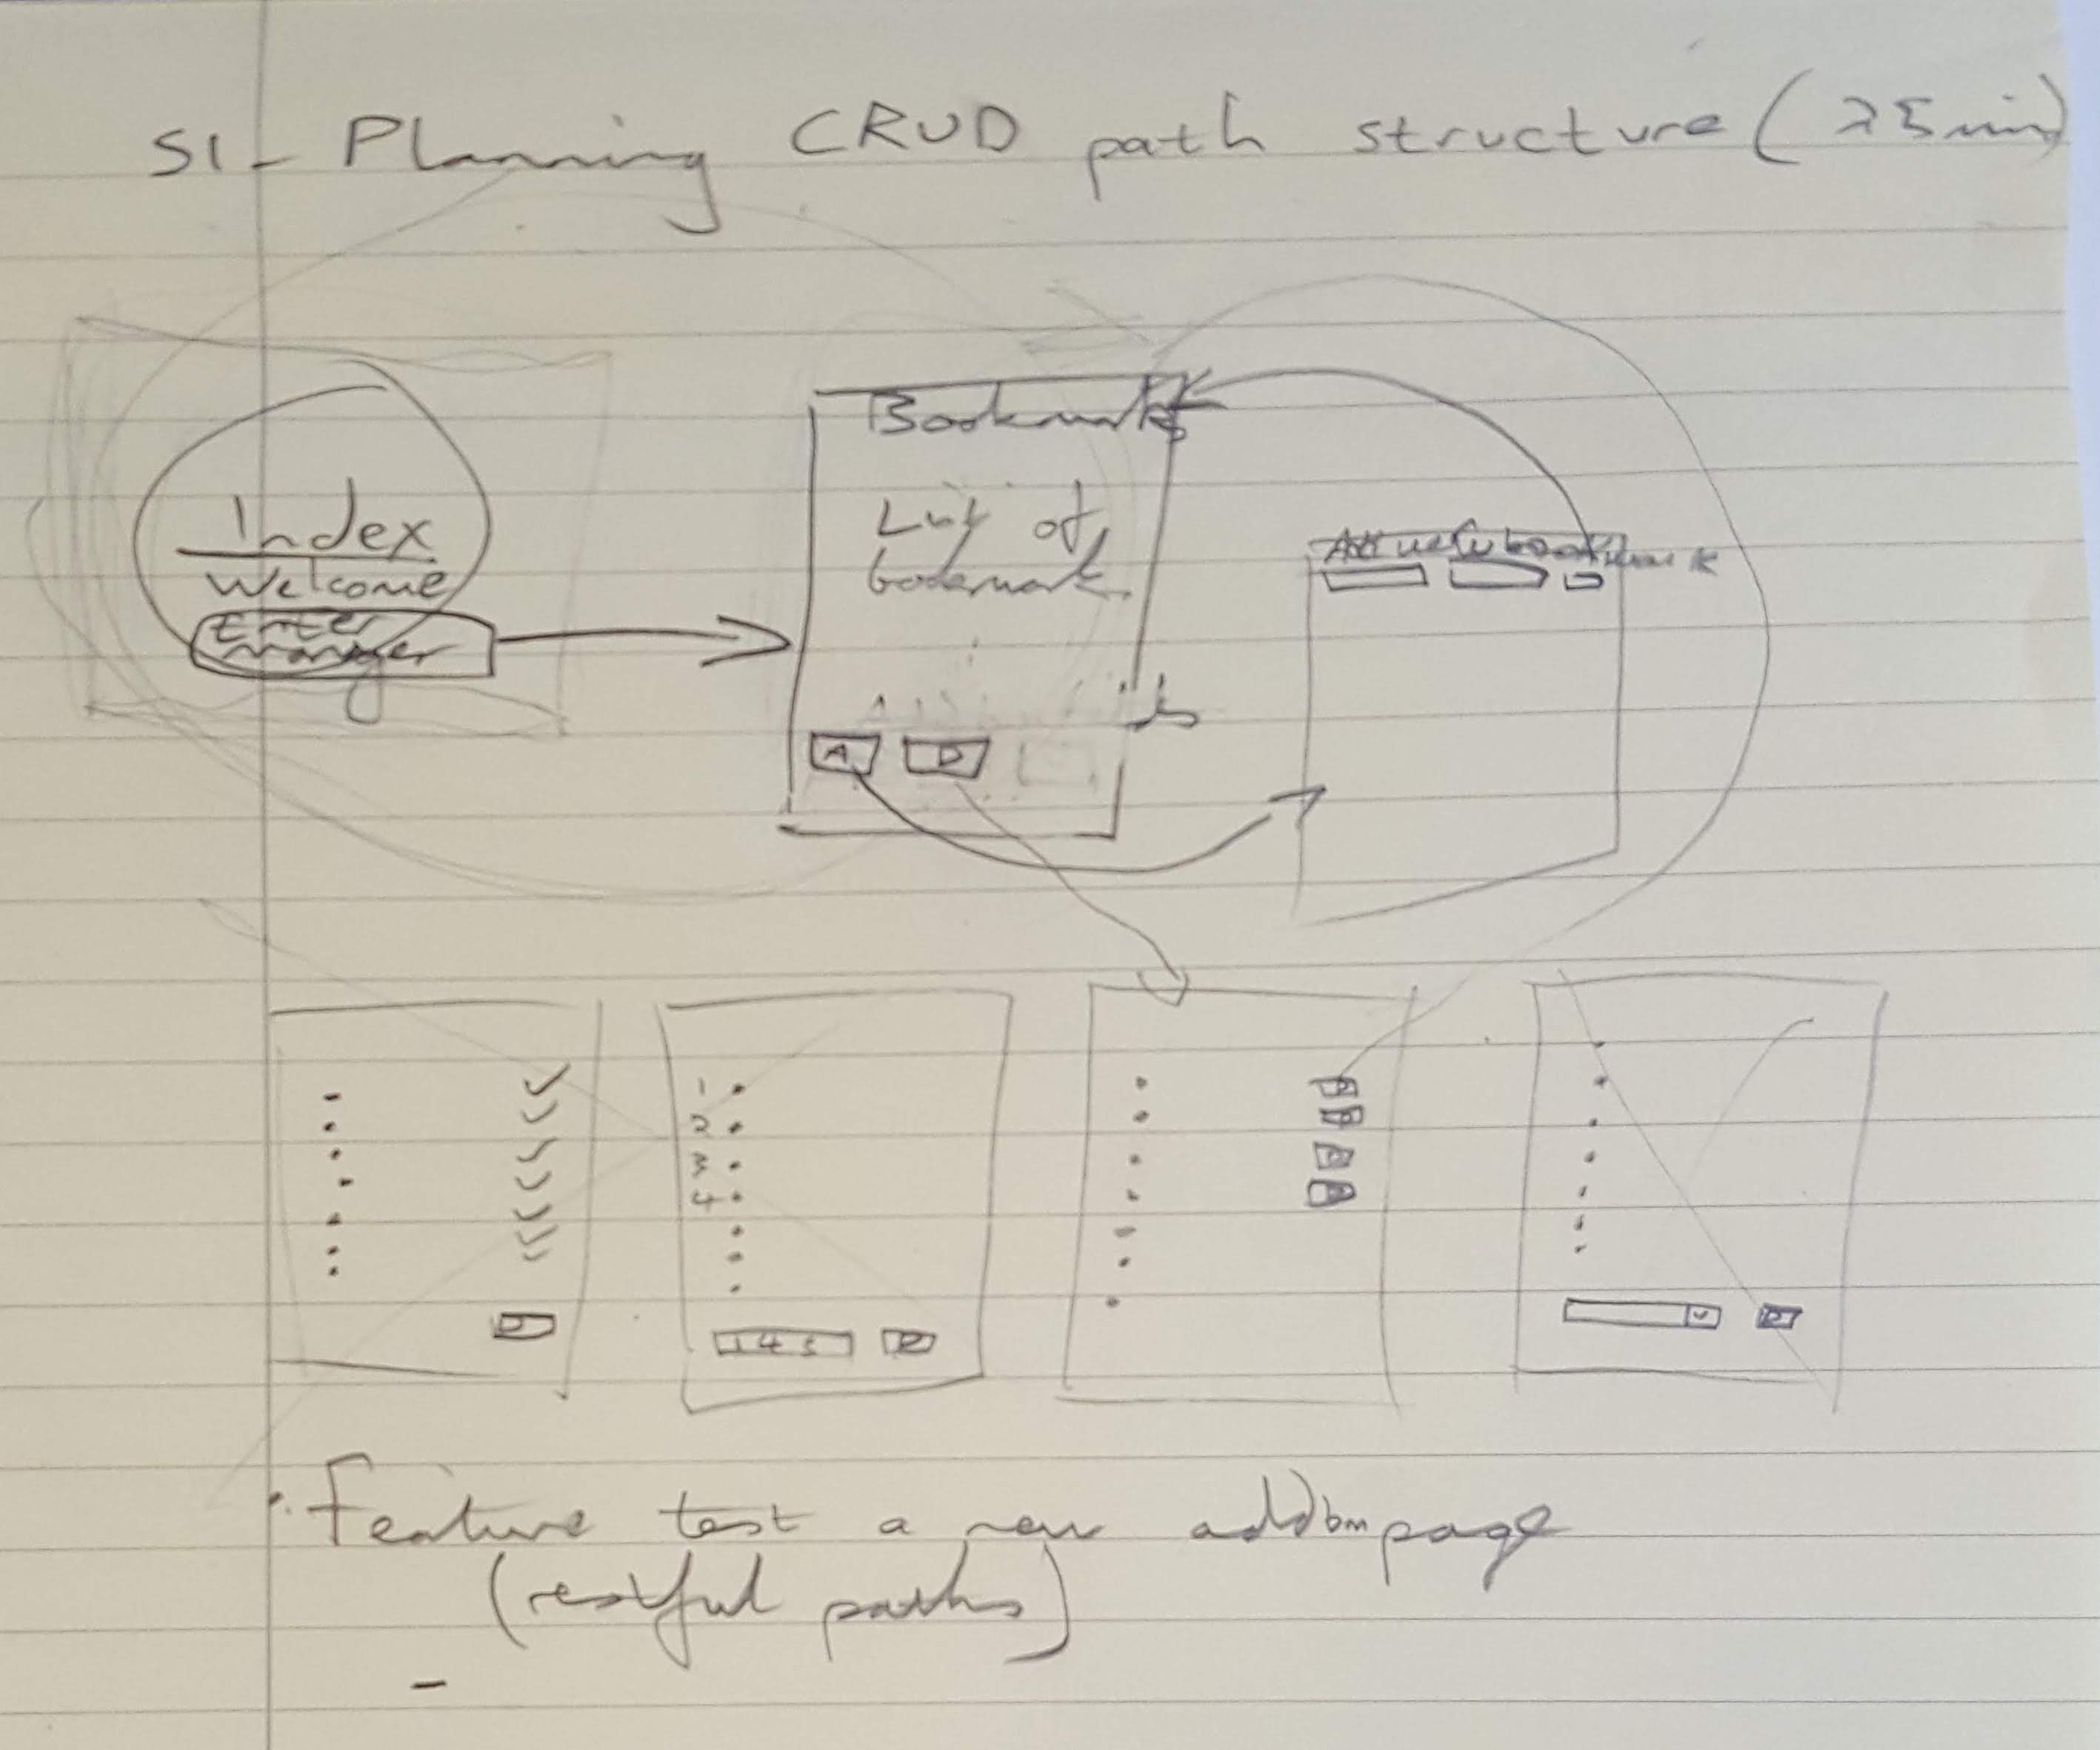 S1 - Planning CRUD path structure (25 min)
Index
Welcome
Enter
manager
Bookmarks
List of
bookmarks
A D
bookmark
2
3
4
1 4 5
D
D
Feature test a new add bm page
(restful paths)
-